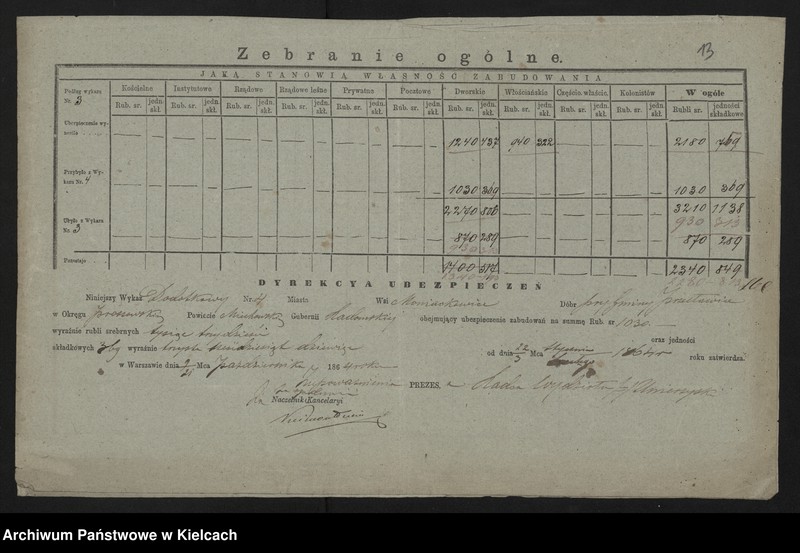 13
Zebranie ogólne.
JAKĄ STANOWIĄ WŁASNOŚĆ ZABUDOWANIA
Podług wykazu Nr. 3
Kościelne Instytutowe Rządowe Rządowe leśne Prywatne Pocztowe Dworskie Włościańskie Częścio. właścic. Kolonistów W ogóle
Rub. sr. jedn. skł. Rub. sr. jedn. skł. Rub. sr. jedn. skł. Rub. sr. jedn. skł. Rub. sr. jedn. skł. Rub. sr. jedn. skł. Rub. sr. jedn. skł. Rub. sr. jedn. skł. Rub. sr. jedn. skł. Rub. sr. jedn. skł. Rubli sr. jedności składkowe
Ubezpieczenie wynosiło
1240 437 940 322 2180 769
Przybyło z Wykazu Nr. 4
1030 369 1030 369
2270 806 3210 1138
930 313
Ubyło z Wykazu No 3
870 289 870 289
Pozostaje
1400 517 2340 849
DYREKCYA UBEZPIECZEŃ
Niniejszy Wykaz Dodatkowy Nr. 4 Miasto Wsi Dóbr
w Okręgu Powiecie Miechowskim Gubernii Radomskiej obejmujący ubezpieczenie zabudowań na summę Rub. sr. 1030
wyraźnie rubli srebrnych tysiąc trzydzieści oraz jedności
składkowych 369 wyraźnie trzysta sześćdziesiąt dziewięć od dnia Mca roku zatwierdza.
w Warszawie dnia 9/21 Mca Października 1864 roku
PREZES,
Naczelnik Kancelaryi
Archiwum Państwowe w Kielcach